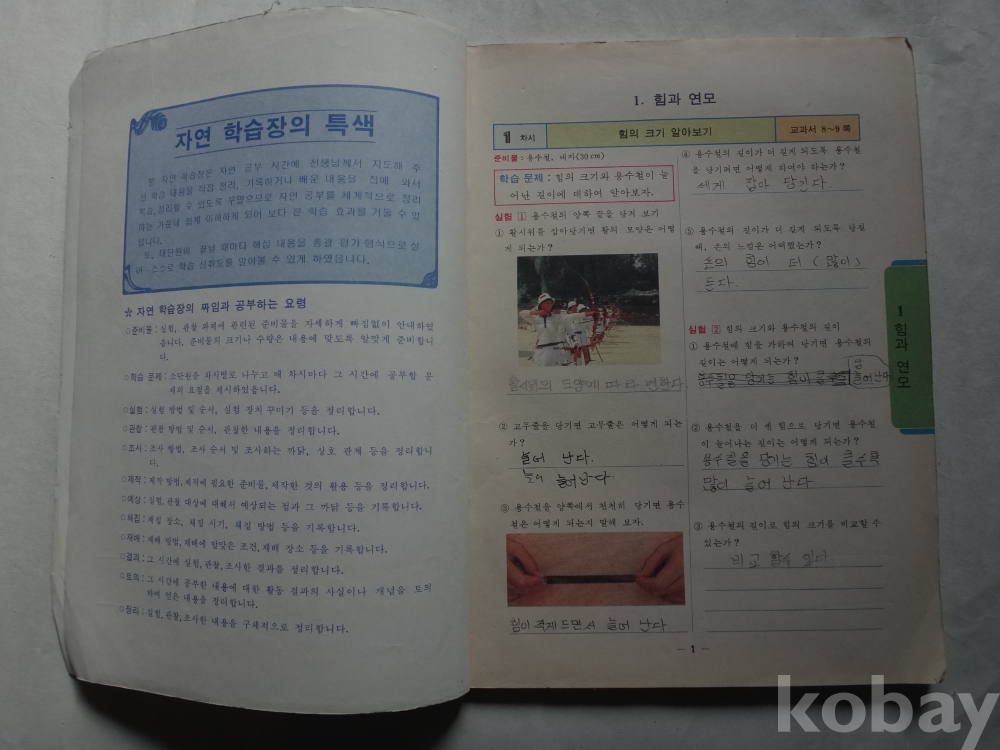 자연 학습장의 특색
이 자연 학습장은 자연 공부 시간에 선생님께서 지도해 주
신 학습 내용을 직접 정리, 기록하거나 배운 내용을 집에 와서
복습, 정리할 수 있도록 꾸몄으므로 자연 공부를 체계적으로 정리
하는 가운데 쉽게 이해하게 되어 보다 큰 학습 효과를 거둘 수 있
습니다.
또, 대단원이 끝날 때마다 핵심 내용을 총괄 평가 형식으로 실
어 스스로 학습 성취도를 알아볼 수 있게 하였습니다.
☆ 자연 학습장의 짜임과 공부하는 요령
○준비물: 실험, 관찰 과제에 관련된 준비물을 자세하게 빠짐없이 안내하였
습니다. 준비물의 크기나 수량은 내용에 맞도록 알맞게 준비합니
다.
○학습 문제: 소단원을 차시별로 나누고 매 차시마다 그 시간에 공부할 문
제의 요점을 제시하였습니다.
○실험: 실험 방법 및 순서, 실험 장치 꾸미기 등을 정리합니다.
○관찰: 관찰 방법 및 순서, 관찰한 내용을 정리합니다.
○조사: 조사 방법, 조사 순서 및 조사하는 까닭, 상호 관계 등을 정리합니
다.
○제작: 제작 방법, 제작에 필요한 준비물, 제작한 것의 활용 등을 정리합니다.
○예상: 실험, 관찰 대상에 대해서 예상되는 점과 그 까닭 등을 기록합니다.
○채집: 채집 장소, 채집 시기, 채집 방법 등을 기록합니다.
○재배: 재배 방법, 재배에 알맞은 조건, 재배 장소 등을 기록합니다.
○결과: 그 시간에 실험, 관찰, 조사한 결과를 정리합니다.
○토의: 그 시간에 공부한 내용에 대한 활동 결과의 사실이나 개념을 토의
하여 얻은 내용을 정리합니다.
○정리: 실험, 관찰, 조사한 내용을 구체적으로 정리합니다.
1. 힘과 연모
1 차시 힘의 크기 알아보기 교과서 8~9쪽
준비물: 용수철, 대자(30cm)
학습 문제: 힘의 크기와 용수철이 늘
어난 길이에 대하여 알아보자.
실험 1 용수철의 양쪽 끝을 당겨 보기
① 활시위를 잡아당기면 활의 모양은 어떻
게 되는가?
모양에 따라 변한다
② 고무줄을 당기면 고무줄은 어떻게 되는
가?
늘어 난다.
늘어 늘어난다
③ 용수철을 양쪽에서 천천히 당기면 용수
철은 어떻게 되는지 말해 보자.
힘이 적게 드면서 늘어 난다
④ 용수철의 길이가 더 길게 되도록 용수철
을 당기려면 어떻게 하여야 하는가?
세게 잡아 당긴다.
⑤ 용수철의 길이가 더 길게 되도록 당길
때, 손의 느낌은 어떠했는가?
손의 힘이 더 (많이)
든다.
실험 2 힘의 크기와 용수철의 길이
① 용수철에 힘을 가하여 당기면 용수철의
길이는 어떻게 되는가?
용수철을 당기는 힘이 클수록 늘어난다
② 용수철을 더 센 힘으로 당기면 용수철
이 늘어나는 길이는 어떻게 되는가?
용수철을 당기는 힘이 클수록
많이 늘어 난다
③ 용수철의 길이로 힘의 크기를 비교할 수
있는가?
비교 할수 있다
1 힘과 연모
— 1 —
kobay